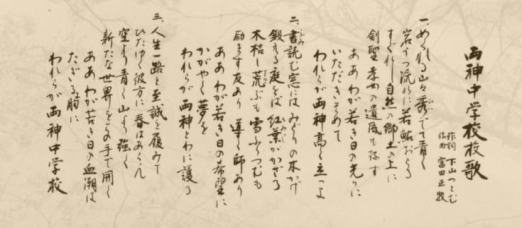 両神中学校校歌
作詞 下山つとむ
作曲 富田正牧
一、めぐれる山々秀でて青く
岩ばしる流れに若鮎おどる
すぐれし自然の郷土の上に
剣聖 孝の遺風を
ああわが若き日の光りに
いただきあて
われらが両神高く立つよ
二、書読む窓にはみどりの木かげ
鍛える庭をば紅葉がかざる
木枯し荒ぶも雪ふりつむも
励ます友あり 導く師あり
ああわが若き日の希望に
かがやく夢を
われらが両神とわに護る
三、人生一路と至誠を履みて
ひたゆく彼方に 春はあらん
空より青く 山より強く
新たな世界をこの手で開く
ああわが若き日の血潮は
たぎる胸に
われらが両神中学校